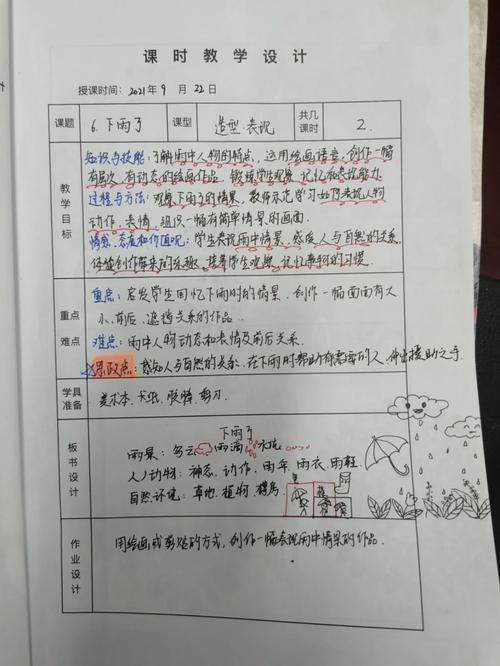 课时教学设计
授课时间：2021年9月22日
课题 6.下雨了 课型 造型·表现 共几课时 2.
教学目标
知识与技能：了解雨中人物的特点，运用绘画语言，创作一幅
有层次、有动态的绘画作品。锻炼学生观察、记忆和表现能力。
过程与方法：观察下雨了的情景，教师示范学习如何表现人物
动作、表情，组织一幅有简单情景的画面。
情感、态度和价值观：学生表现雨中情景，感受人与自然的关系，
体验创作带来的乐趣，培养学生观察、记忆事物的习惯。
重点难点
重点：启发学生回忆下雨时的情景，创作一幅画面有大
小、前后、遮挡关系的作品
难点：雨中人物动态和表情及前后关系。
思政点：感知人与自然的关系，在下雨时帮助有需要的人，伸出援助之手。
学具准备 美术本、卡纸、胶棒、剪刀．
板书设计
下雨了
雨景：乌云 雨滴 水坑
人（动）物：神态、动作、雨伞、雨衣、雨鞋
自然环境：草地、植物、楼房
作业设计
用绘画或剪贴的方式，创作一幅表现雨中情景的作品．